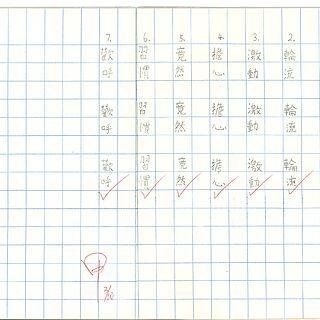 2. 輪流 輪流 輪流
3. 激動 激動 激動
4. 擔心 擔心 擔心
5. 竟然 竟然 竟然
6. 習慣 習慣 習慣
7. 歡呼 歡呼 歡呼